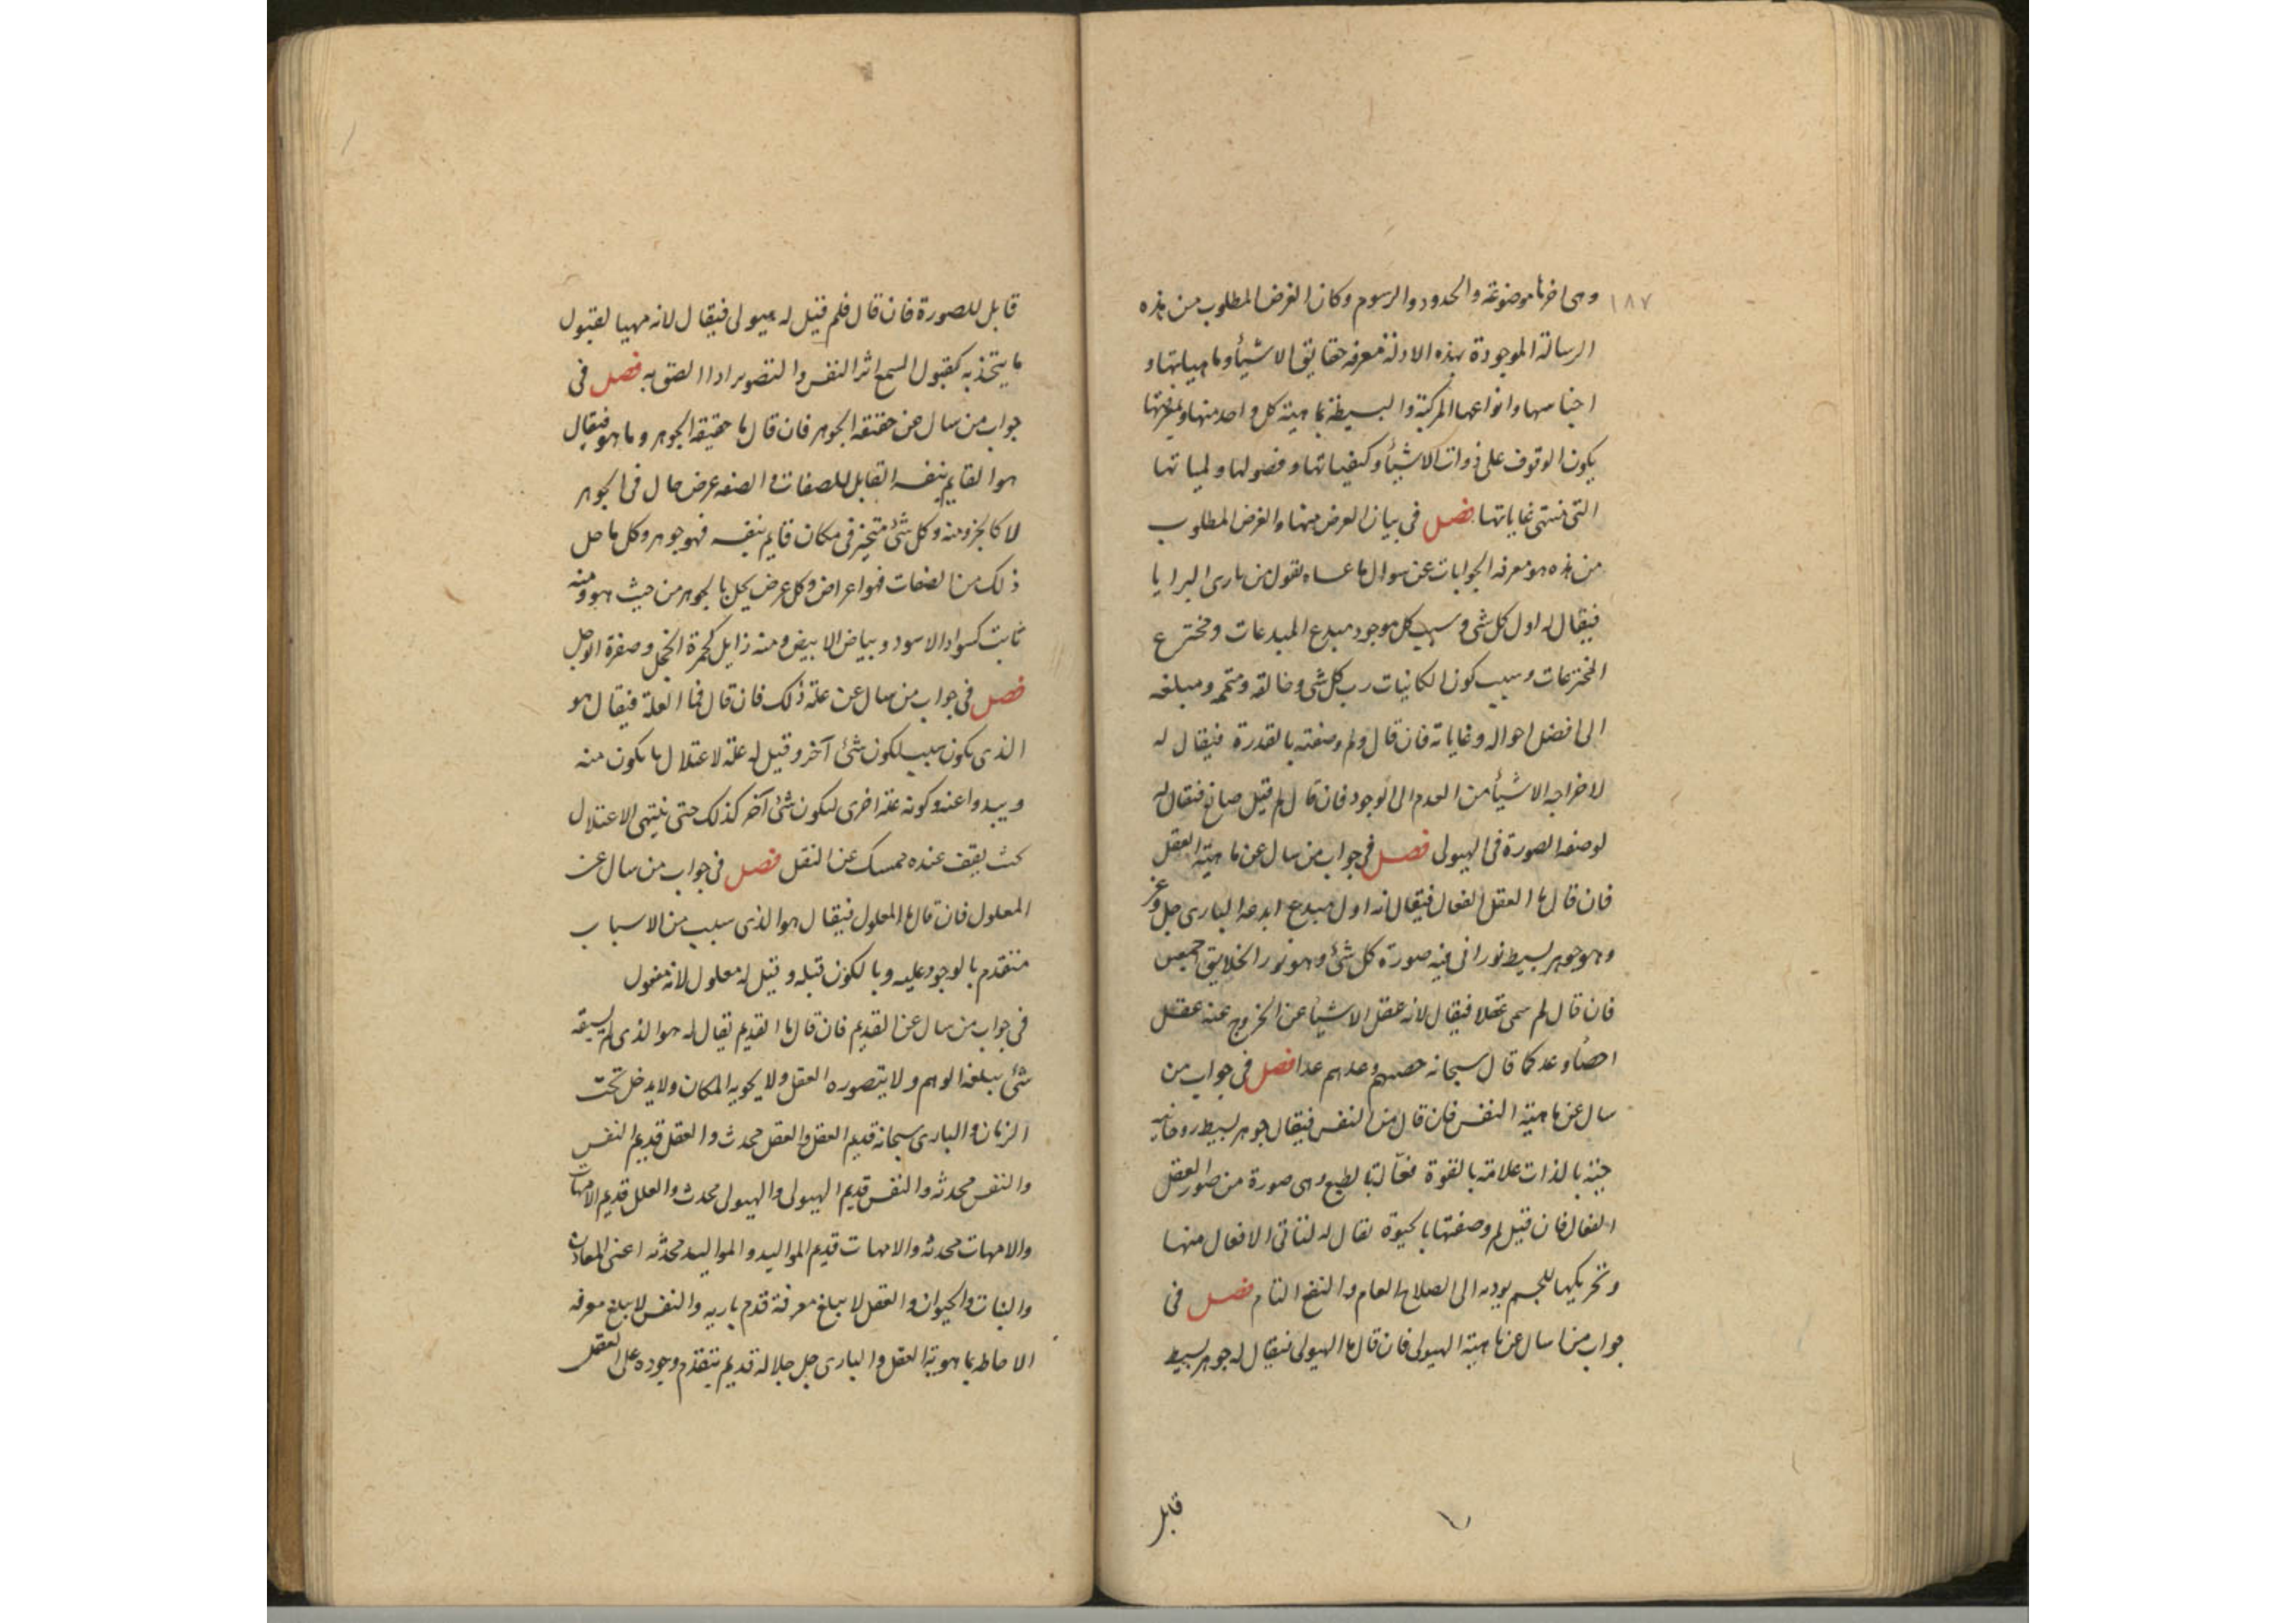 ١٨٧
وهى اخرها موضوعة والحدود والرسوم وكان الغرض المطلوب من هذه
الرسالة الموجودة بهذه الادلة معرفه حقايق الاشيأ وماهياتها و
اجناسها وانواعها المركبة والبسيطة بماهية كل واحد منها وبمعرفتها
يكون الوقوف على ذوات الاشيأ وكيفياتها وفصولها ولمياتها
التى تنتهى غاياتها فصل فى بيان الغرض منها والغرض المطلوب
من هذه هو معرفه الجوابات عن سوال ما عساه يقول من بارى البرايا
فيقال له اول كل شى وسبب كل موجود مبدع المبدعات ومخترع
المخترعات وسبب كون الكانيات رب كل شى وخالقه ومتممه ومبلغه
الى افضل احواله وغاياته فان قال ولم وصفته بالقدرة فيقال له
لاخراجه الاشيأ من العدم الى الوجود فان قال لم قيل صانع فيقال له
لوضعه الصورة فى الهيولى فصل فى جواب من سال عن ماهية العقل
فان قال ما العقل الفعال فيقال انه اول مبدع ابدعه البارى جل وعز
وهو جوهر بسيط نورانى فيه صورة كل شئ وهو نور الخلايق اجمعين
فان قال لم سمى عقلا فيقال لانه عقل الاشيأ عن الخروج عنه عقل
احصأ وعد كما قال سبحانه حصيهم وعدهم عدا فصل فى جواب من
سال عن ماهية النفس فان قال من النفس فيقال جوهر بسيط روحانيه
حية بالذات علامة بالقوة فعالة بالطبع وهى صورة من صور العقل
الفعال فان قيل لم وصفتها بالحيوة يقال له لتاتى الافعال منها
وتحريكها للجسم يوديه الى الصلاح العام والنفع التام فصل فى
جواب من سال عن ماهية الهيولى فان قال ما الهيولى فيقال له جوهر بسيط
قابل
قابل للصورة فان قال فلم قيل له هيولى فيقال لانه مهيا لقبول
ما يتخذ به كقبول السمع اثر النفس والتصوير اذا الصق به فصل فى
جواب من سال عن حقيقه الجوهر فان قال ما حقيقه الجوهر وما هو فيقال
هو القايم بنفسه القابل للصفات والصفه عرض حال فى الجوهر
لا كالجزو منه وكل شئ متحيز فى مكان قايم بنفسه فهو جوهر وكل ما حل
ذلك من الصفات فهو اعراض وكل عرض يحل بالجوهر من حيث هو ومنه
ثابت كسواد الاسود وبياض الابيض ومنه زايل كحمرة الخجل وصفرة الوجل
فصل فى جواب من سال عن علة ذلك فان قال فما العلة فيقال هو
الذى يكون سبب لكون شئ آخر وقيل له علة لاعتلال ما يكون منه
ويبدوا عنه وكونه علة اخرى لكون شئ آخر كذلك حتى ينتهى الاعتلال
بحيث يقف عنده ممسك عن النقل فصل فى جواب من سال عن
المعلول فان قال ما المعلول فيقال هو الذى سبب من الاسباب
متقدم بالوجود عليه وبالكون قبله وقيل له معلول لانه مفعول
فى جواب من سال عن القديم فان قال ما القديم يقال له هو الذى لم يسبقه
شئ يبلغه الوهم ولا يتصوره العقل ولا يحويه المكان ولا يدخل تحت
الزمان والبارى سبحانه قديم العقل والعقل محدث والعقل قديم النفس
والنفس محدثه والنفس قديم الهيولى والهيولى محدث والعلل قديم الامهات
والامهات محدثه والامهات قديم المواليد والمواليد محدثه اعنى المعادن
والنبات والحيوان والعقل لا يبلغ معرفة قدم باريه والنفس لا يبلغ معرفه
الاحاطه بماهوية العقل والبارى جل جلاله قديم يتقدم وجوده على العقل